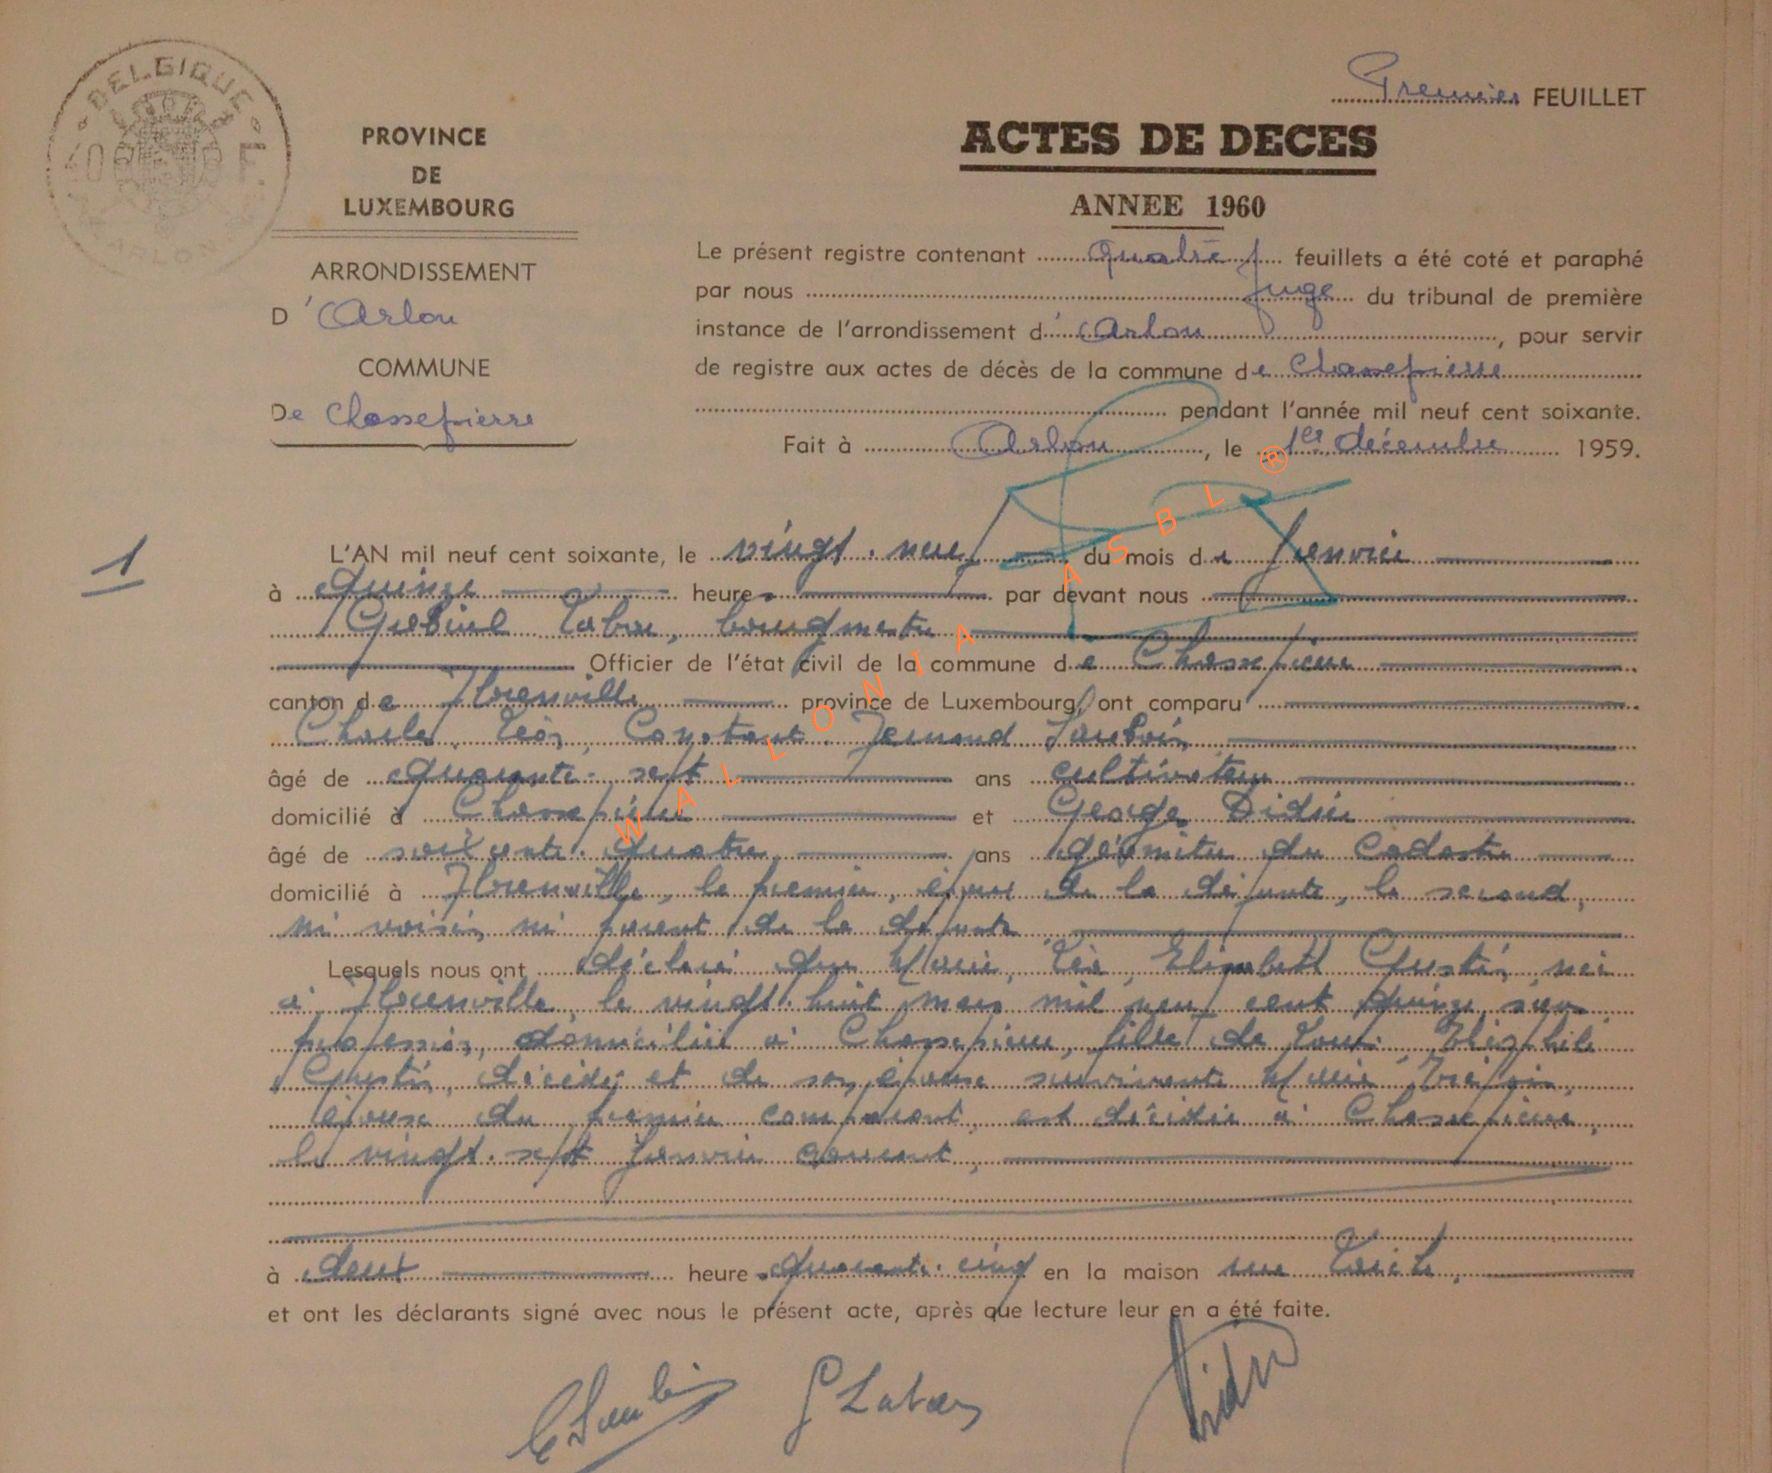 BELGIQUE
40 F.
ARLON
Premier FEUILLET
PROVINCE
DE
LUXEMBOURG
ARRONDISSEMENT
D'Arlon
COMMUNE
De Chassepierre
ACTES DE DECES
ANNEE 1960
Le présent registre contenant quatre feuillets a été coté et paraphé
par nous juge du tribunal de première
instance de l'arrondissement d'Arlon, pour servir
de registre aux actes de décès de la commune de Chassepierre
pendant l'année mil neuf cent soixante.
Fait à Arlon, le 1er décembre 1959.
1
L'AN mil neuf cent soixante, le vingt-neuf du mois de janvier
à quinze heures par devant nous
Gabriel Labar, bourgmestre
Officier de l'état civil de la commune de Chassepierre
canton de Florenville province de Luxembourg, ont comparu
Charles, Léon, Constant, Fernand
âgé de quarante-sept ans cultivateur
domicilié à Chassepierre et Georges Didier
âgé de soixante-quatre ans géomètre du Cadastre
domicilié à Florenville, le premier, époux de la défunte, le second,
ni voisin ni parent de la défunte
Lesquels nous ont déclaré que Marie, Léa, Elisabeth Gustin, née
à Florenville, le vingt-huit mars mil neuf cent quinze, sans
profession, domiciliée à Chassepierre, fille de Louis
Gustin, décédé et de son épouse survivante Marie
épouse du premier comparant, est décédée à Chassepierre,
le vingt-sept janvier courant,
à deux heures quarante-cinq en la maison sue Laiche,
et ont les déclarants signé avec nous le présent acte, après que lecture leur en a été faite.
G Labar
Didier
WALLONIA ASBL ®